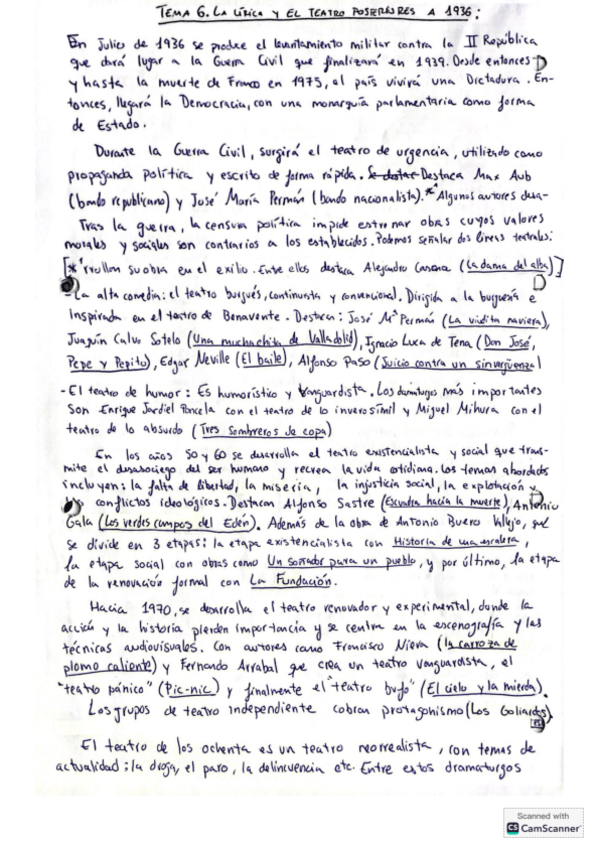 TEMA 6. LA LÍRICA Y EL TEATRO POSTERIORES A 1936:
En Julio de 1936 se produce el levantamiento militar contra la II República
que dará lugar a la Guerra Civil que finalizará en 1939. Desde entonces
y hasta la muerte de Franco en 1975, el país vivirá una Dictadura. En-
tonces, llegará la Democracia, con una monarquía parlamentaria como forma
de Estado.
Durante la Guerra Civil, surgirá el teatro de urgencia, utilizado como
propaganda política y escrito de forma rápida. Destaca Max Aub
(bando republicano) y José María Permán (bando nacionalista).* Algunos autores desa-
Tras la guerra, la censura política impide estrenar obras cuyos valores
morales y sociales son contrarios a los establecidos. Podemos señalar dos líneas teatrales:
[* rrollan su obra en el exilio. Entre ellos destaca Alejandro Casona (La dama del alba)]
-La alta comedia: el teatro burgués, continuista y convencional. Dirigida a la burguesía e
inspirada en el teatro de Benavente. Destaca: José Mª Permán (La viudita naviera),
Juaquín Calvo Sotelo (Una muchachita de Valladolid), Ignacio Luca de Tena (Don José,
Pepe y Pepito), Edgar Neville (El baile), Alfonso Paso (Juicio contra un sinvergüenza)
-El teatro de humor: Es humorístico y vanguardista. Los dramaturgos más importantes
son Enrique Jardiel Poncela con el teatro de lo inverosímil y Miguel Mihura con el
teatro de lo absurdo (Tres sombreros de copa)
En los años 50 y 60 se desarrolla el teatro existencialista y social que trans-
mite el desasosiego del ser humano y recrea la vida cotidiana. Los temas abordados
incluyen: la falta de libertad, la miseria, la injusticia social, la explotación y
los conflictos ideológicos. Destacan Alfonso Sastre (Escuadra hacia la muerte), Antonio
Gala (Los verdes campos del Edén). Además de la obra de Antonio Buero Vallejo, que
se divide en 3 etapas: la etapa existencialista con Historia de una escalera,
la etapa social con obras como Un soñador para un pueblo, y por último, la etapa
de la renovación formal con La Fundación.
Hacia 1970, se desarrolla el teatro renovador y experimental, donde la
acción y la historia pierden importancia y se centra en la escenografía y las
técnicas audiovisuales. Con autores como Francisco Nieva (la carroza de
plomo caliente) y Fernando Arrabal que crea un teatro vanguardista, el
"teatro pánico" (Pic-nic) y finalmente el "teatro bufo" (El cielo y la mierda).
Los grupos de teatro independiente cobran protagonismo (Los Goliardos)
El teatro de los ochenta es un teatro neorrealista, con temas de
actualidad: la droga, el paro, la delincuencia etc. Entre estos dramaturgos
Scanned with
CS CamScanner